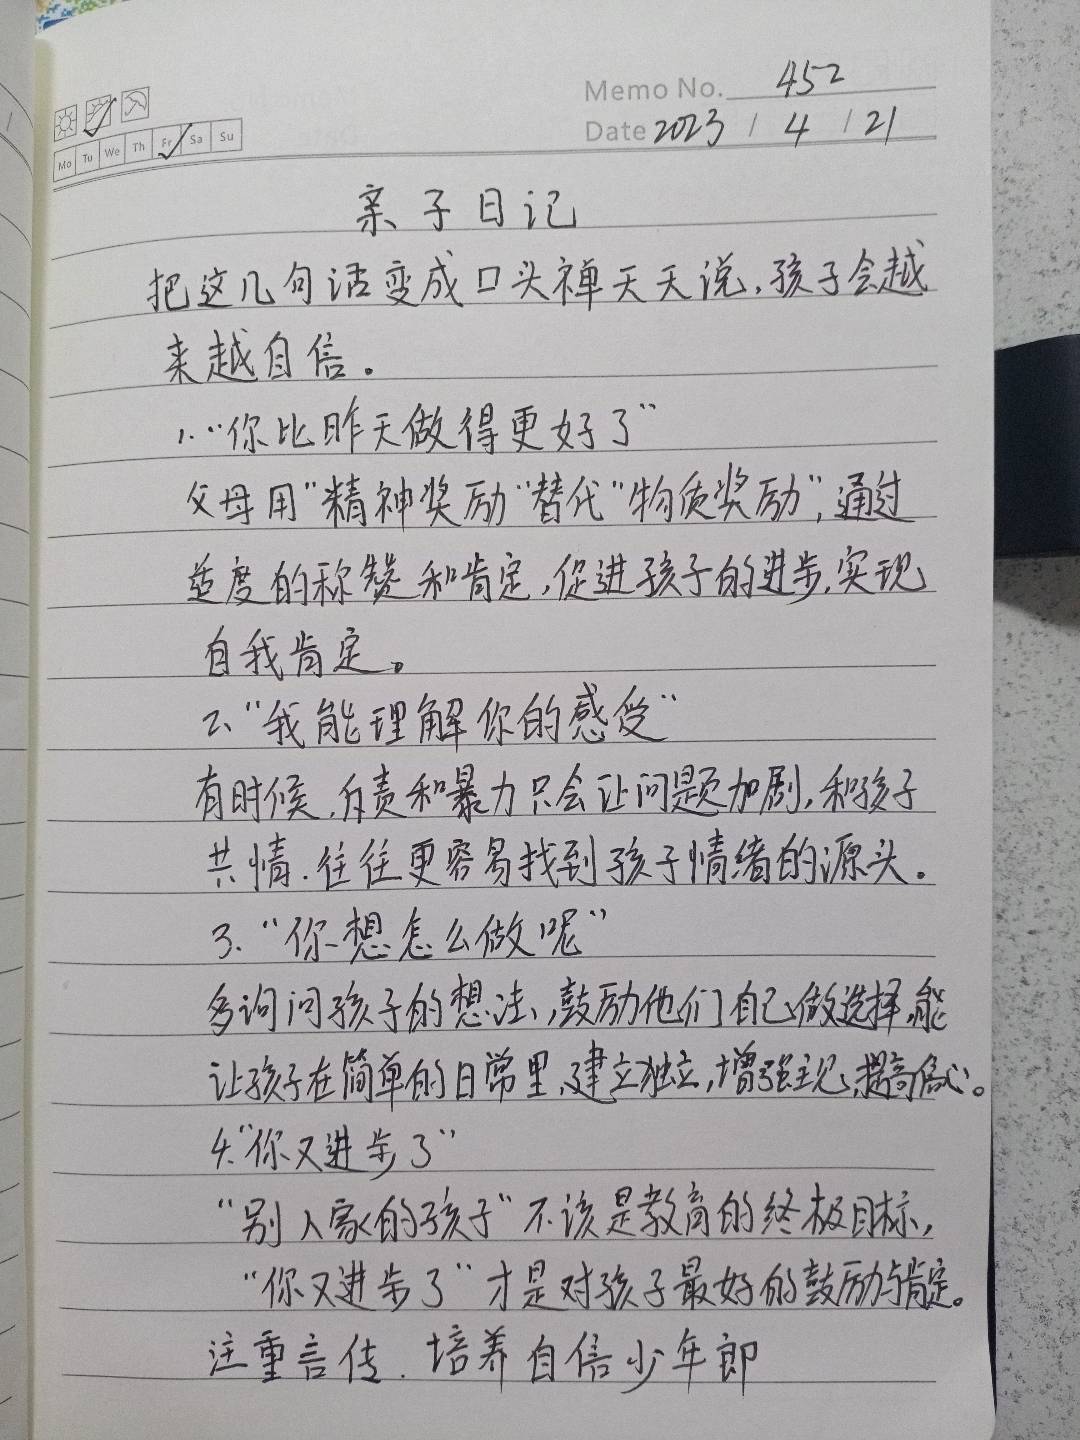 Memo No. 452
Date 2023 / 4 / 21
Mo Tu We Th Fr Sa Su
亲子日记
把这几句话变成口头禅天天说,孩子会越
来越自信。
1."你比昨天做得更好了"
父母用"精神奖励"替代"物质奖励",通过
适度的称赞和肯定,促进孩子的进步,实现
自我肯定。
2、"我能理解你的感受"
有时候,斥责和暴力只会让问题加剧,和孩子
共情.往往更容易找到孩子情绪的源头。
3."你想怎么做呢"
多询问孩子的想法,鼓励他们自己做选择,能
让孩子在简单的日常里,建立独立,增强主见,提高信心。
4."你又进步了"
"别人家的孩子"不该是教育的终极目标,
"你又进步了"才是对孩子最好的鼓励与肯定。
注重言传.培养自信少年郎